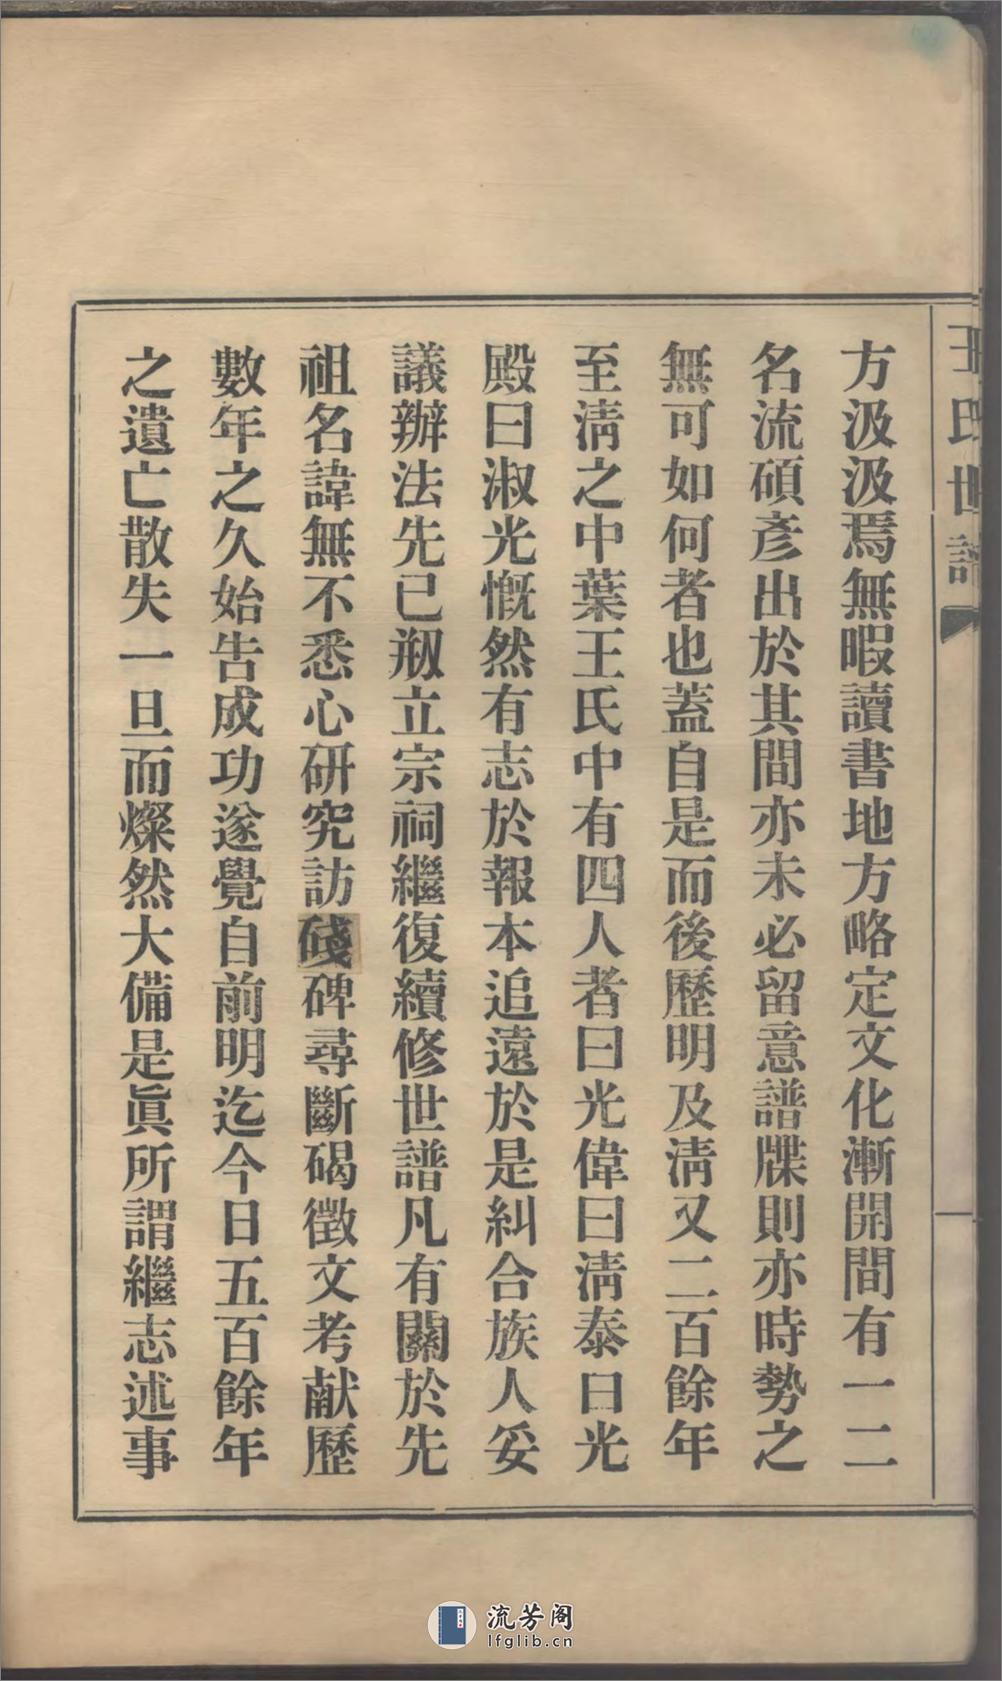 王氏世譜
方汲汲焉無暇讀書地方略定文化漸開間有一二
名流碩彥出於其間亦未必留意譜牒則亦時勢之
無可如何者也蓋自是而後歷明及淸又二百餘年
至淸之中葉王氏中有四人者曰光偉曰淸泰曰光
殿曰淑光慨然有志於報本追遠於是糾合族人妥
議辦法先已刱立宗祠繼復續修世譜凡有關於先
祖名諱無不悉心研究訪碊碑尋斷碣徵文考献歷
數年之久始告成功遂覺自前明迄今日五百餘年
之遺亡散失一旦而燦然大備是眞所謂繼志述事
流芳阁
lfglib.cn